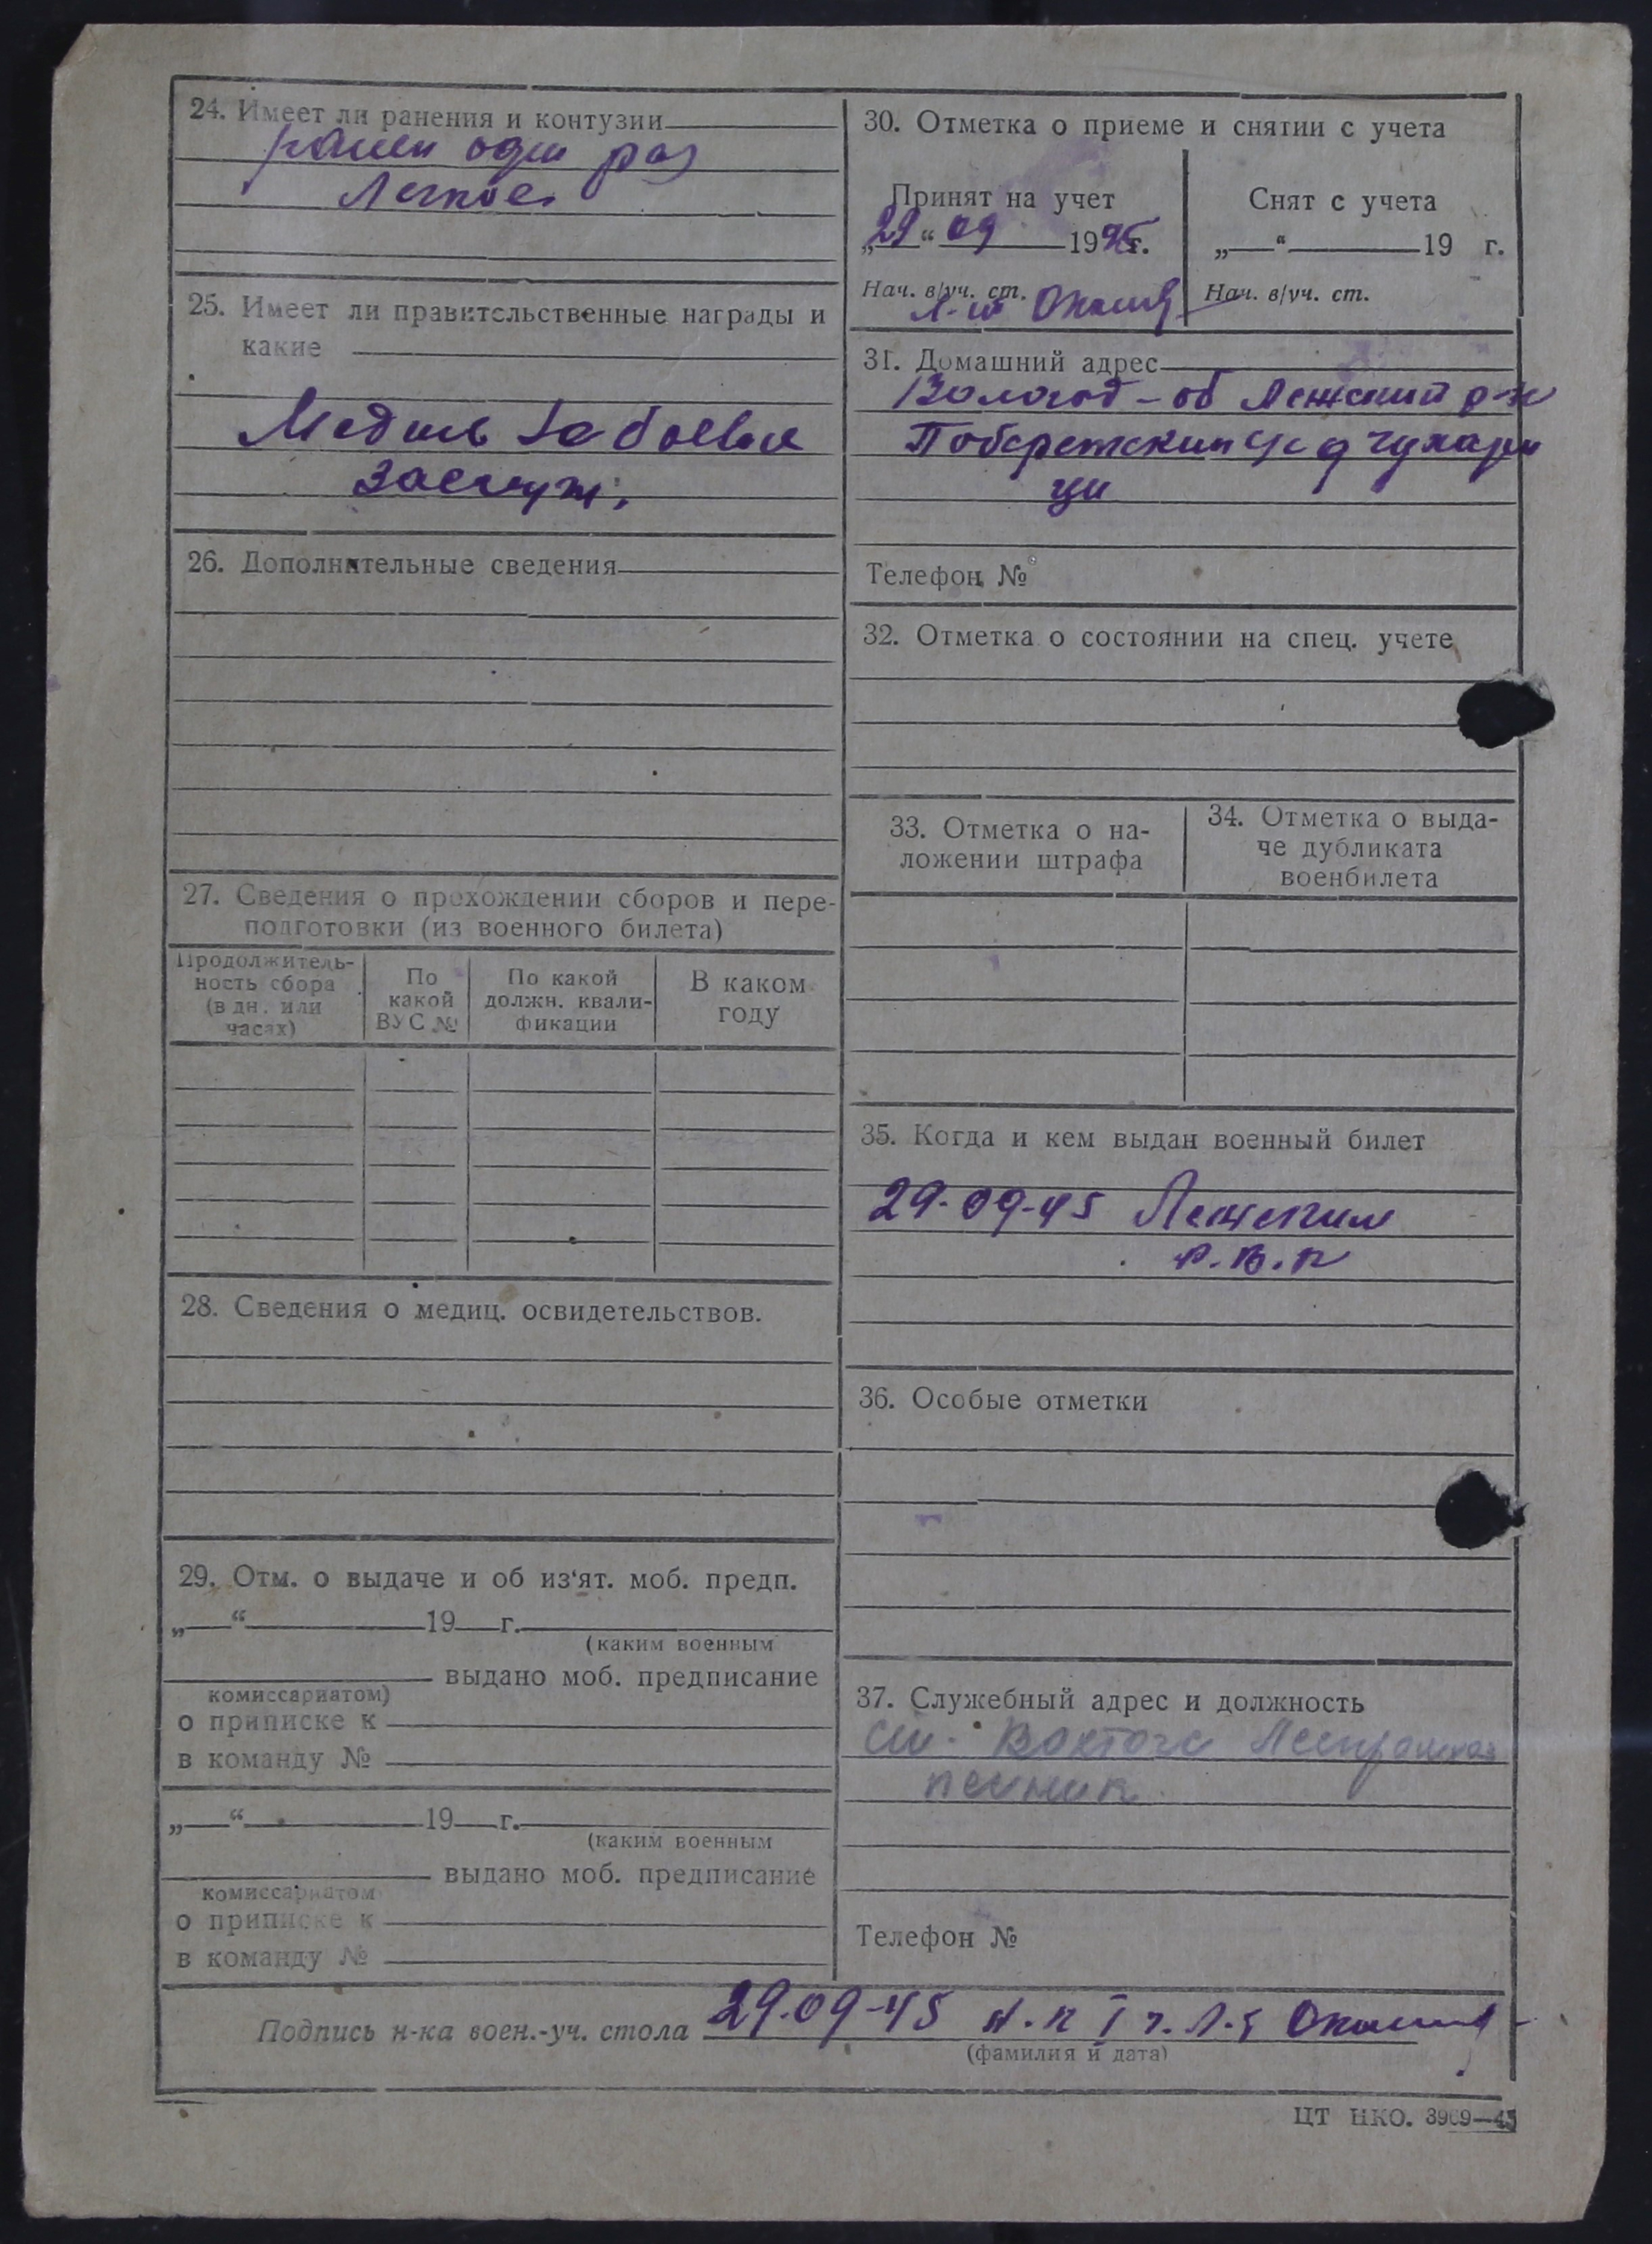 24. Имеет ли ранения и контузии
ранен один раз
Легкое.
25. Имеет ли правительственные награды и
какие
Медаль за боевые
заслуж.
26. Дополнительные сведения
27. Сведения о прохождении сборов и пере-
подготовки (из военного билета)
Продолжитель-
ность сбора
(в дн. или
часах)
По
какой
ВУС №
По какой
должн. квали-
фикации
В каком
году
28. Сведения о медиц. освидетельствов.
29. Отм. о выдаче и об из‘ят. моб. предп.
„ “ 19 г.
(каким военным
выдано моб. предписание
комиссариатом)
о приписке к
в команду №
„ “ 19 г.
(каким военным
выдано моб. предписание
комиссариатом
о приписке к
в команду №
30. Отметка о приеме и снятии с учета
Принят на учет
„29“ 09 1945г.
Нач. в/уч. ст.
Л-т
Снят с учета
„ “ 19 г.
Нач. в/уч. ст.
31. Домашний адрес
Вологод-об Лежский р-н
с/с д Чухари
ци
Телефон №
32. Отметка о состоянии на спец. учете
33. Отметка о на-
ложении штрафа
34. Отметка о выда-
че дубликата
военбилета
35. Когда и кем выдан военный билет
29-09-45 Лежским
Р.В.К
36. Особые отметки
37. Служебный адрес и должность
ст. Вохтога
печник
Телефон №
Подпись н-ка воен.-уч. стола 29.09-45 Н.К I ч. Л-т
(фамилия и дата)
ЦТ НКО. 3969—45